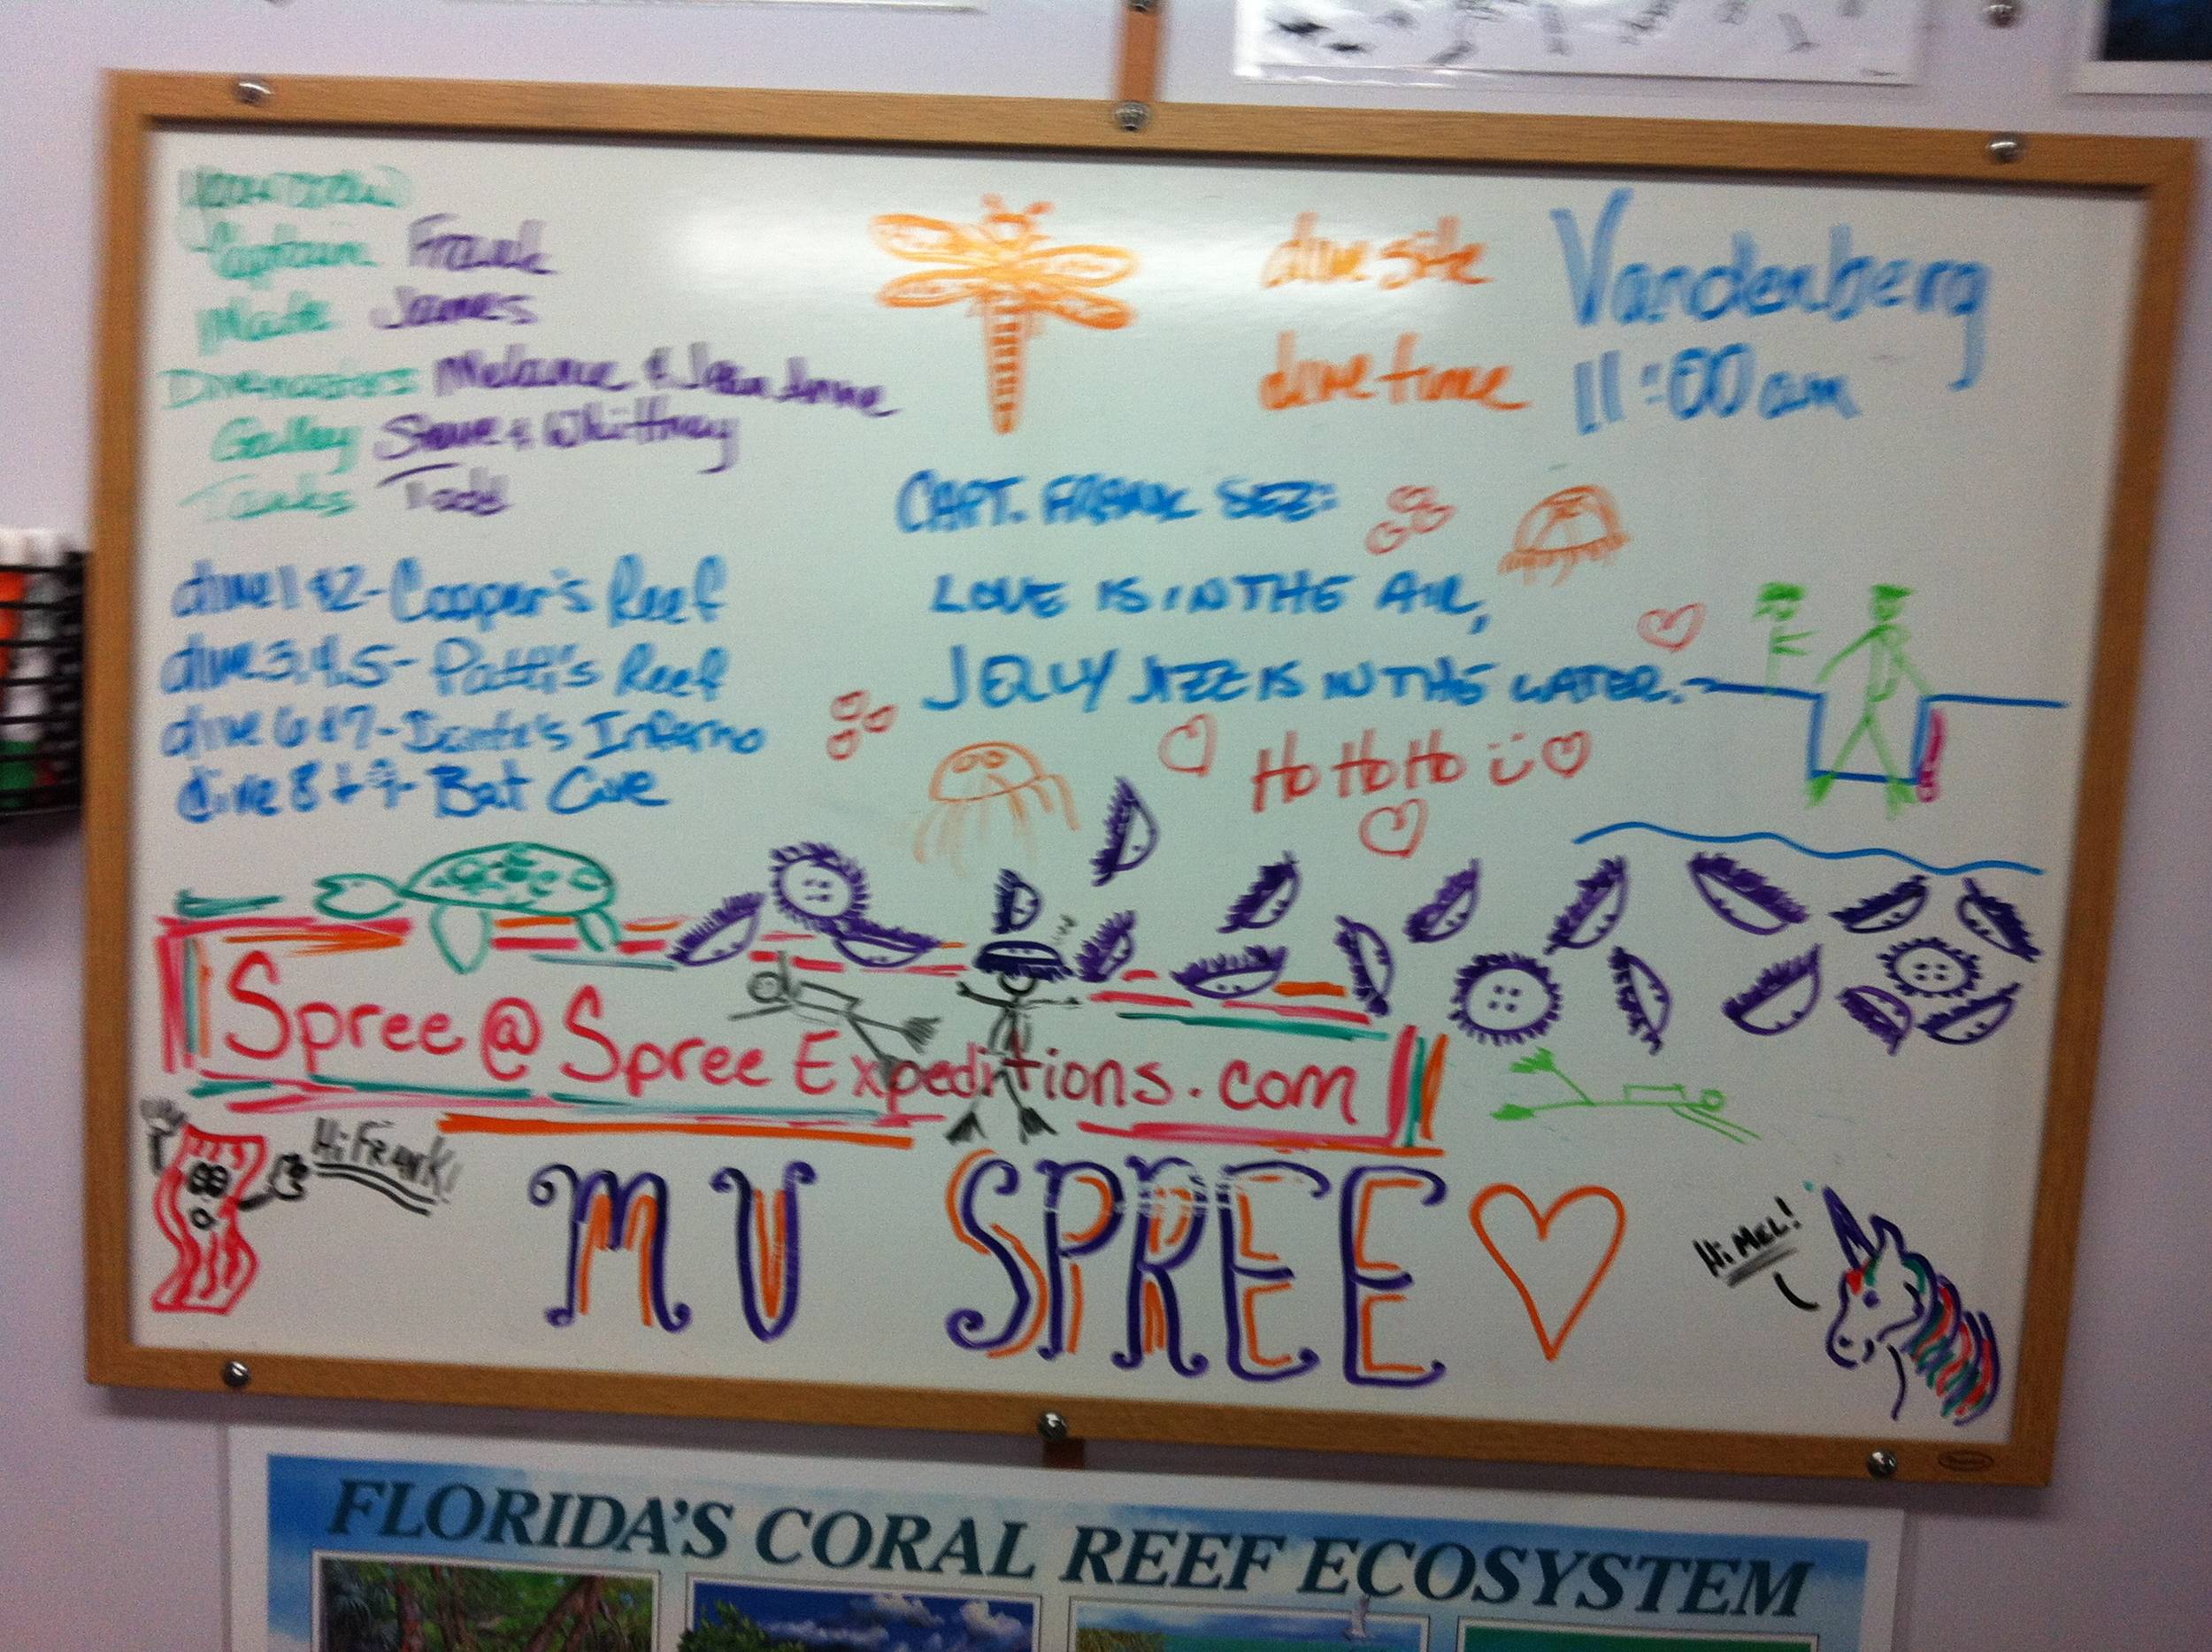 Your crew
Captain Frank
Mate James
Divemasters Melanie & Jean Anne
Galley & Whittney
Tanks Todd
dive site Vandenberg
dive time 11:00 am
dive 1 & 2 - Cooper's Reef
dive 3,4,5 - Patti's Reef
dive 6 & 7 - Dante's Inferno
dive 8 + 9 - Bat Cave
CAPT. FRANK SEZ:
LOVE IS IN THE AIR,
JELLY JIZZ IS IN THE WATER.
Ho Ho Ho
Spree@SpreeExpeditions.com
Hi Frank!
MV SPREE
Hi MEL!
FLORIDA'S CORAL REEF ECOSYSTEM